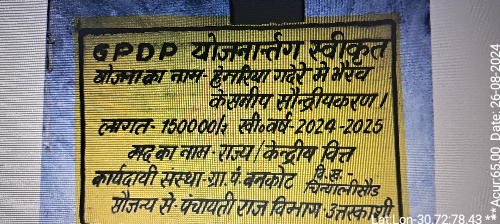 GPDP योजनार्न्तग स्वीकृत
योजना का नाम- हेनरिया गदेरे में भैरव
के समीप सौन्द्रीयकरण।
लागत- 150000/₹ स्वी० वर्ष- 2024-2025
मद का नाम- राज्य/केन्द्रीय वित्त
कार्यदायी संस्था- ग्रा.पं. बनकोट वि.ख.- चिन्यालीसौड
सौजन्य से- पंचायती राज विभाग उत्तरकाशी
Lat Lon-30.72:78.43
***Your:65.00_Date:26-08-2024